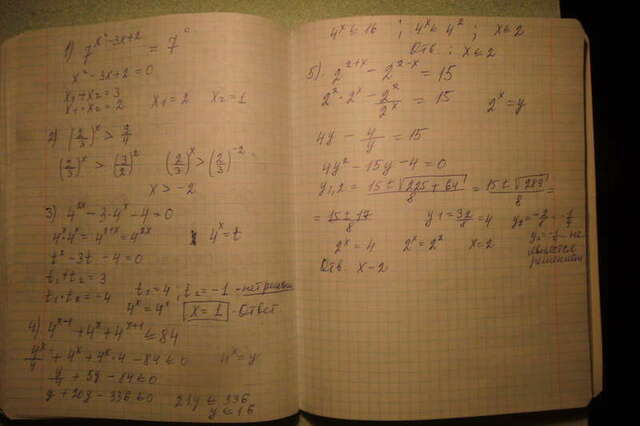 1) 7^(x²-3x+2) = 7^0
x²-3x+2=0
x₁+x₂=3
x₁·x₂=2   x₁=2   x₂=1
2) (2/3)^x >
(2/3)^x > (3/2)^2   (2/3)^x > (2/3)^-2
x > -2
3) 4^2x - 3·4^x - 4=0
4^x·4^x = 4^(x+x) = 4^2x   4^x = t
t² - 3t - 4=0
t₁+t₂=3
t₁·t₂=-4   t₁=4, t₂=-1 - нет решения
4^x=4¹   x=1 - Ответ
4) 4^(x-1) + 4^x + 4^(x+1) ≤ 84
4^x/4 + 4^x + 4^x·4 - 84 ≤ 0   4^x=y
y/4 + 5y - 84 ≤ 0
y + 20y - 336 ≤ 0   21y ≤ 336
y ≤ 16
4^x ≤ 16 ; 4^x ≤ 4² ; x ≤ 2
Отв: x ≤ 2
5) 2^(2+x) - 2^(2-x) = 15
2²·2^x - 2²/2^x = 15   2^x=y
4y - 4/y = 15
4y² - 15y - 4=0
y₁,₂ = (15±√(225+64))/8 = (15±√289)/8 =
= (15±17)/8   y₁=32/8=4   y₂=-2/8=-1/4
2^x=4   2^x=2²   x=2   y₂=-1/4 - не
является
решением
Отв x-2